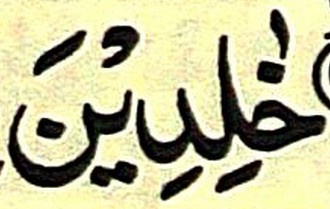 خٰلِدِيْنَ